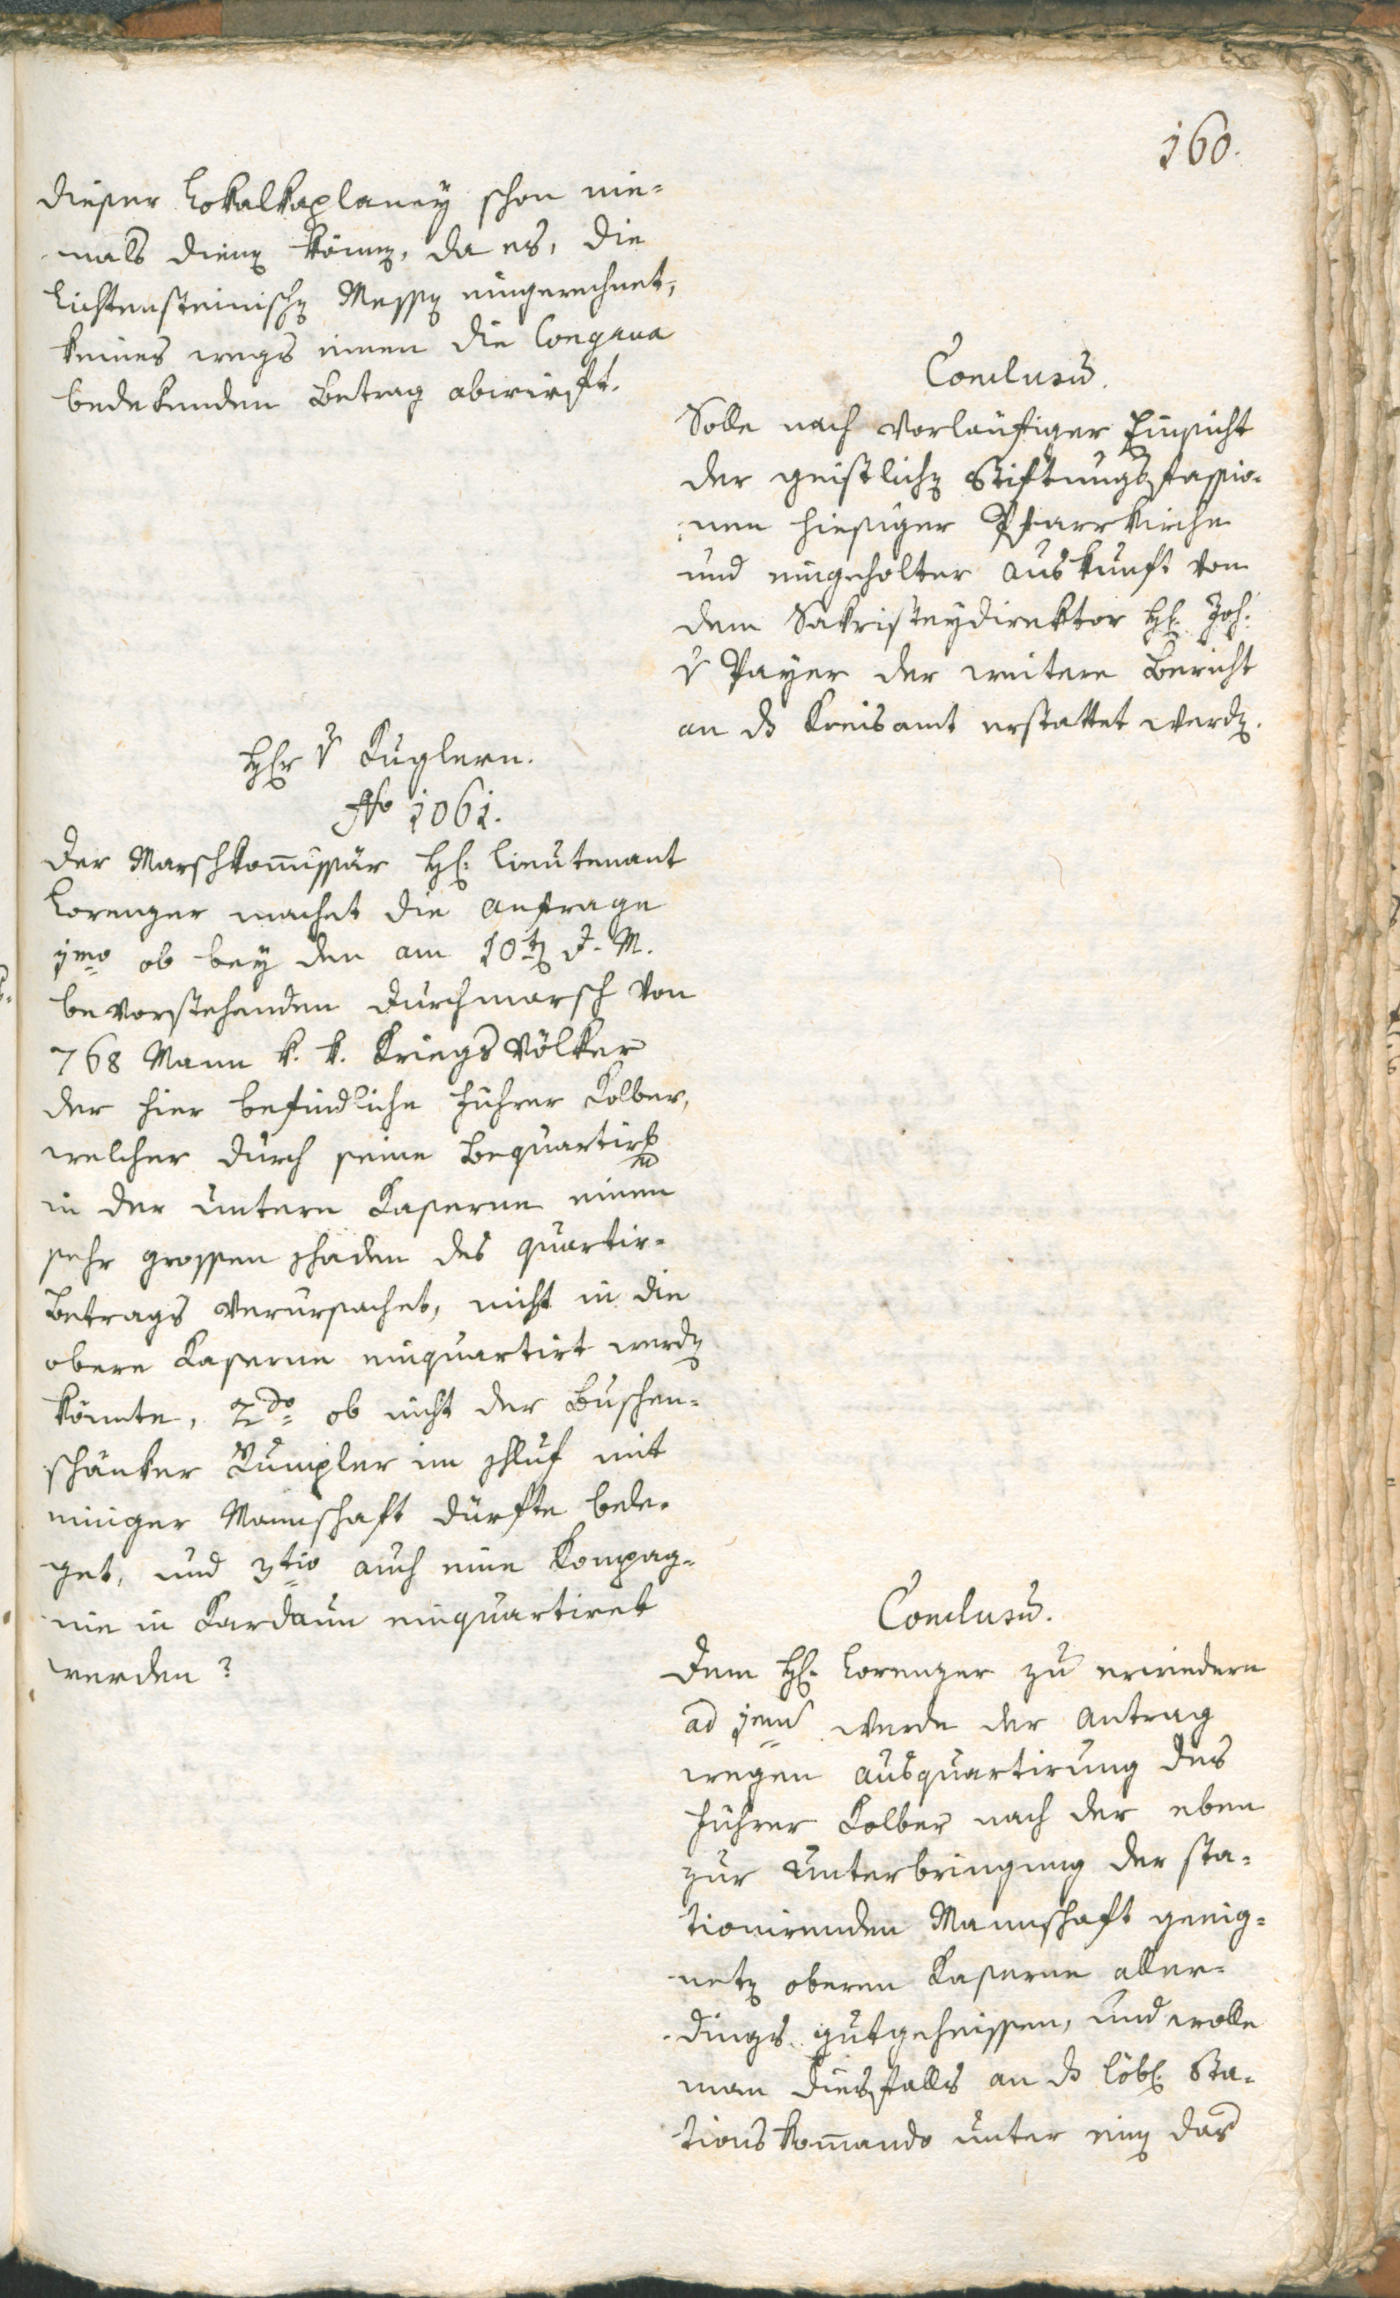 160.
dieser Lokalkaplaney schon nie-
mals dienen können, da es, die
Lichtensteinischen Messen eingerechnet,
keines wegs einen die Congrua
bedekenden Betrag abwirft.
Conclusum.
Solle nach vorläufiger Einsicht
der geistlichen Stiftungsfassio-
nen hiesiger Pfarrkirche
und eingeholter Auskunft von
dem Sakristeydirektor H: Joh:
v Payer der weitere Bericht
an das Kreisamt erstattet werden.
Herr v Kuglern.
No 1061.
Der Marschkommissär H: Lieutenant
Lorenzer machet die Anfrage
1mo ob bey den am 10ten d. M.
bevorstehenden Durchmarsch von
768 Mann k. k. Kriegsvölker
der hier befindliche Führer Kolber,
welcher durch seine Bequartirung
in der untern Kaserne einen
sehr grossen Schaden des Quartir-
Betrags verursachet, nicht in die
obere Kaserne einquartirt werden
könnte, 2do ob nicht der Buschen-
schänker Rumpler im Schluf mit
einiger Mannschaft dürfte bele-
get, und 3tio auch eine Kompag-
nie in Kardaun einquartiret
werden?
Conclusum.
Dem H: Lorenzer zu erwiedern
ad 1mum werde der Antrag
wegen Ausquartirung des
Führer Kolber nach der eben
zur Unterbringung der sta-
tionirenden Mannschaft geeig-
neten oberen Kaserne aller-
dings gutgeheissen, und wolle
man diesfalls an das löbl: Sta-
tionskommando unter einen das